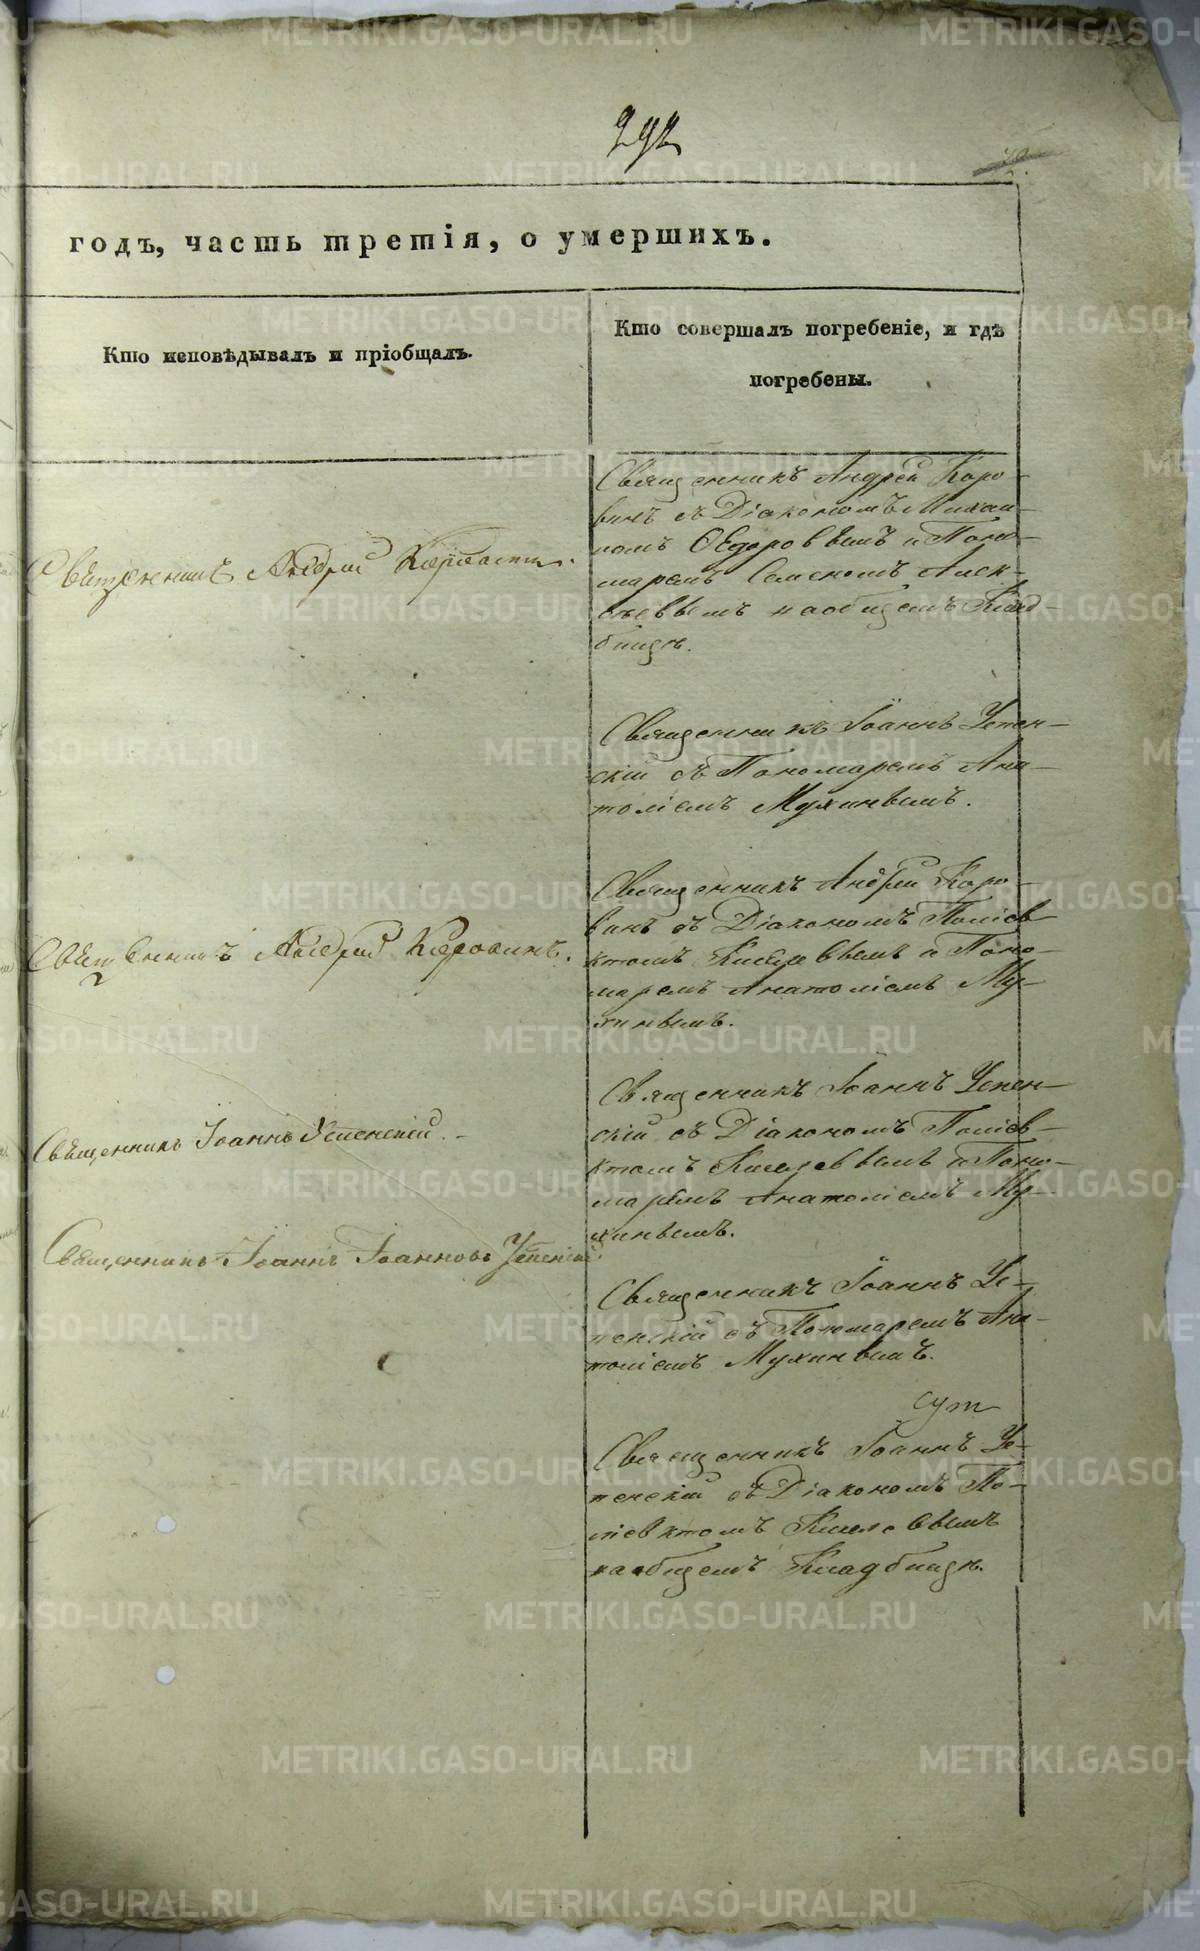 292
годъ, часть третія, о умершихъ.
Кто исповѣдывалъ и пріобщалъ.
Кто совершалъ погребеніе, и гдѣ
погребены.
Священникъ Андрей Коро-
винъ съ Діакономъ Михаи-
ломъ Ѳедоровымъ и Поно-
маремъ Семеномъ Алек-
сѣевымъ на общемъ Клад-
бищѣ.
Священникъ Андрей Коровинъ.
Священникъ Іоаннъ Успен-
скій съ Пономаремъ Ана-
толіемъ Мухинымъ.
Священникъ Андрей Коро-
винъ съ Діакономъ Поліев-
ктомъ Киселевымъ и Поно-
маремъ Анатоліемъ Му-
хинымъ.
Священникъ Андрей Коровинъ.
Священникъ Іоаннъ Успен-
скій съ Діакономъ Поліев-
ктомъ Киселевымъ и Поно-
маремъ Анатоліемъ Му-
хинымъ.
Священникъ Іоаннъ Успенскій.
Священникъ Іоаннъ Іоанновъ Успенскій
Священникъ Іоаннъ Ус-
пенскій съ Пономаремъ Ана-
толіемъ Мухинымъ.
сут
Священникъ Іоаннъ Ус-
пенскій съ Діакономъ По-
ліевктомъ Киселевымъ
на общемъ Кладбищѣ.
METRIKI.GASO-URAL.RU